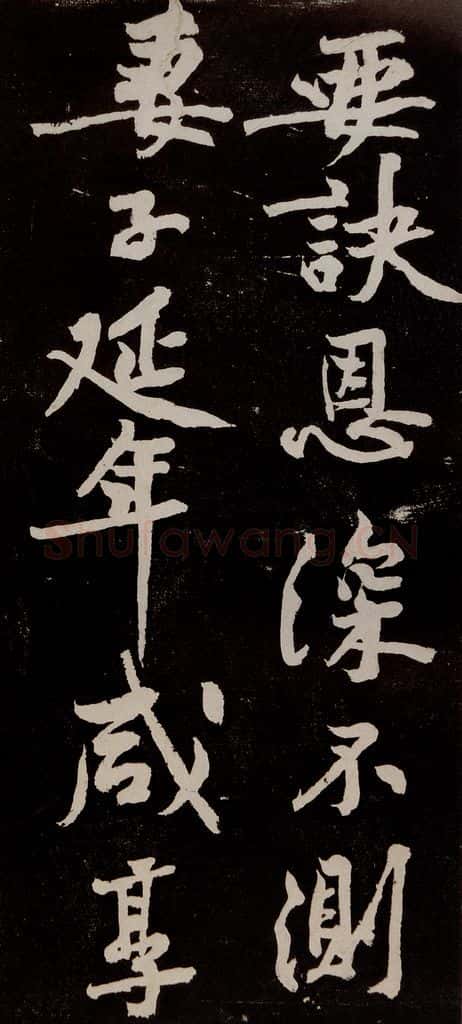 要訣恩深不測
妻子延年咸享
Shufawang.CN